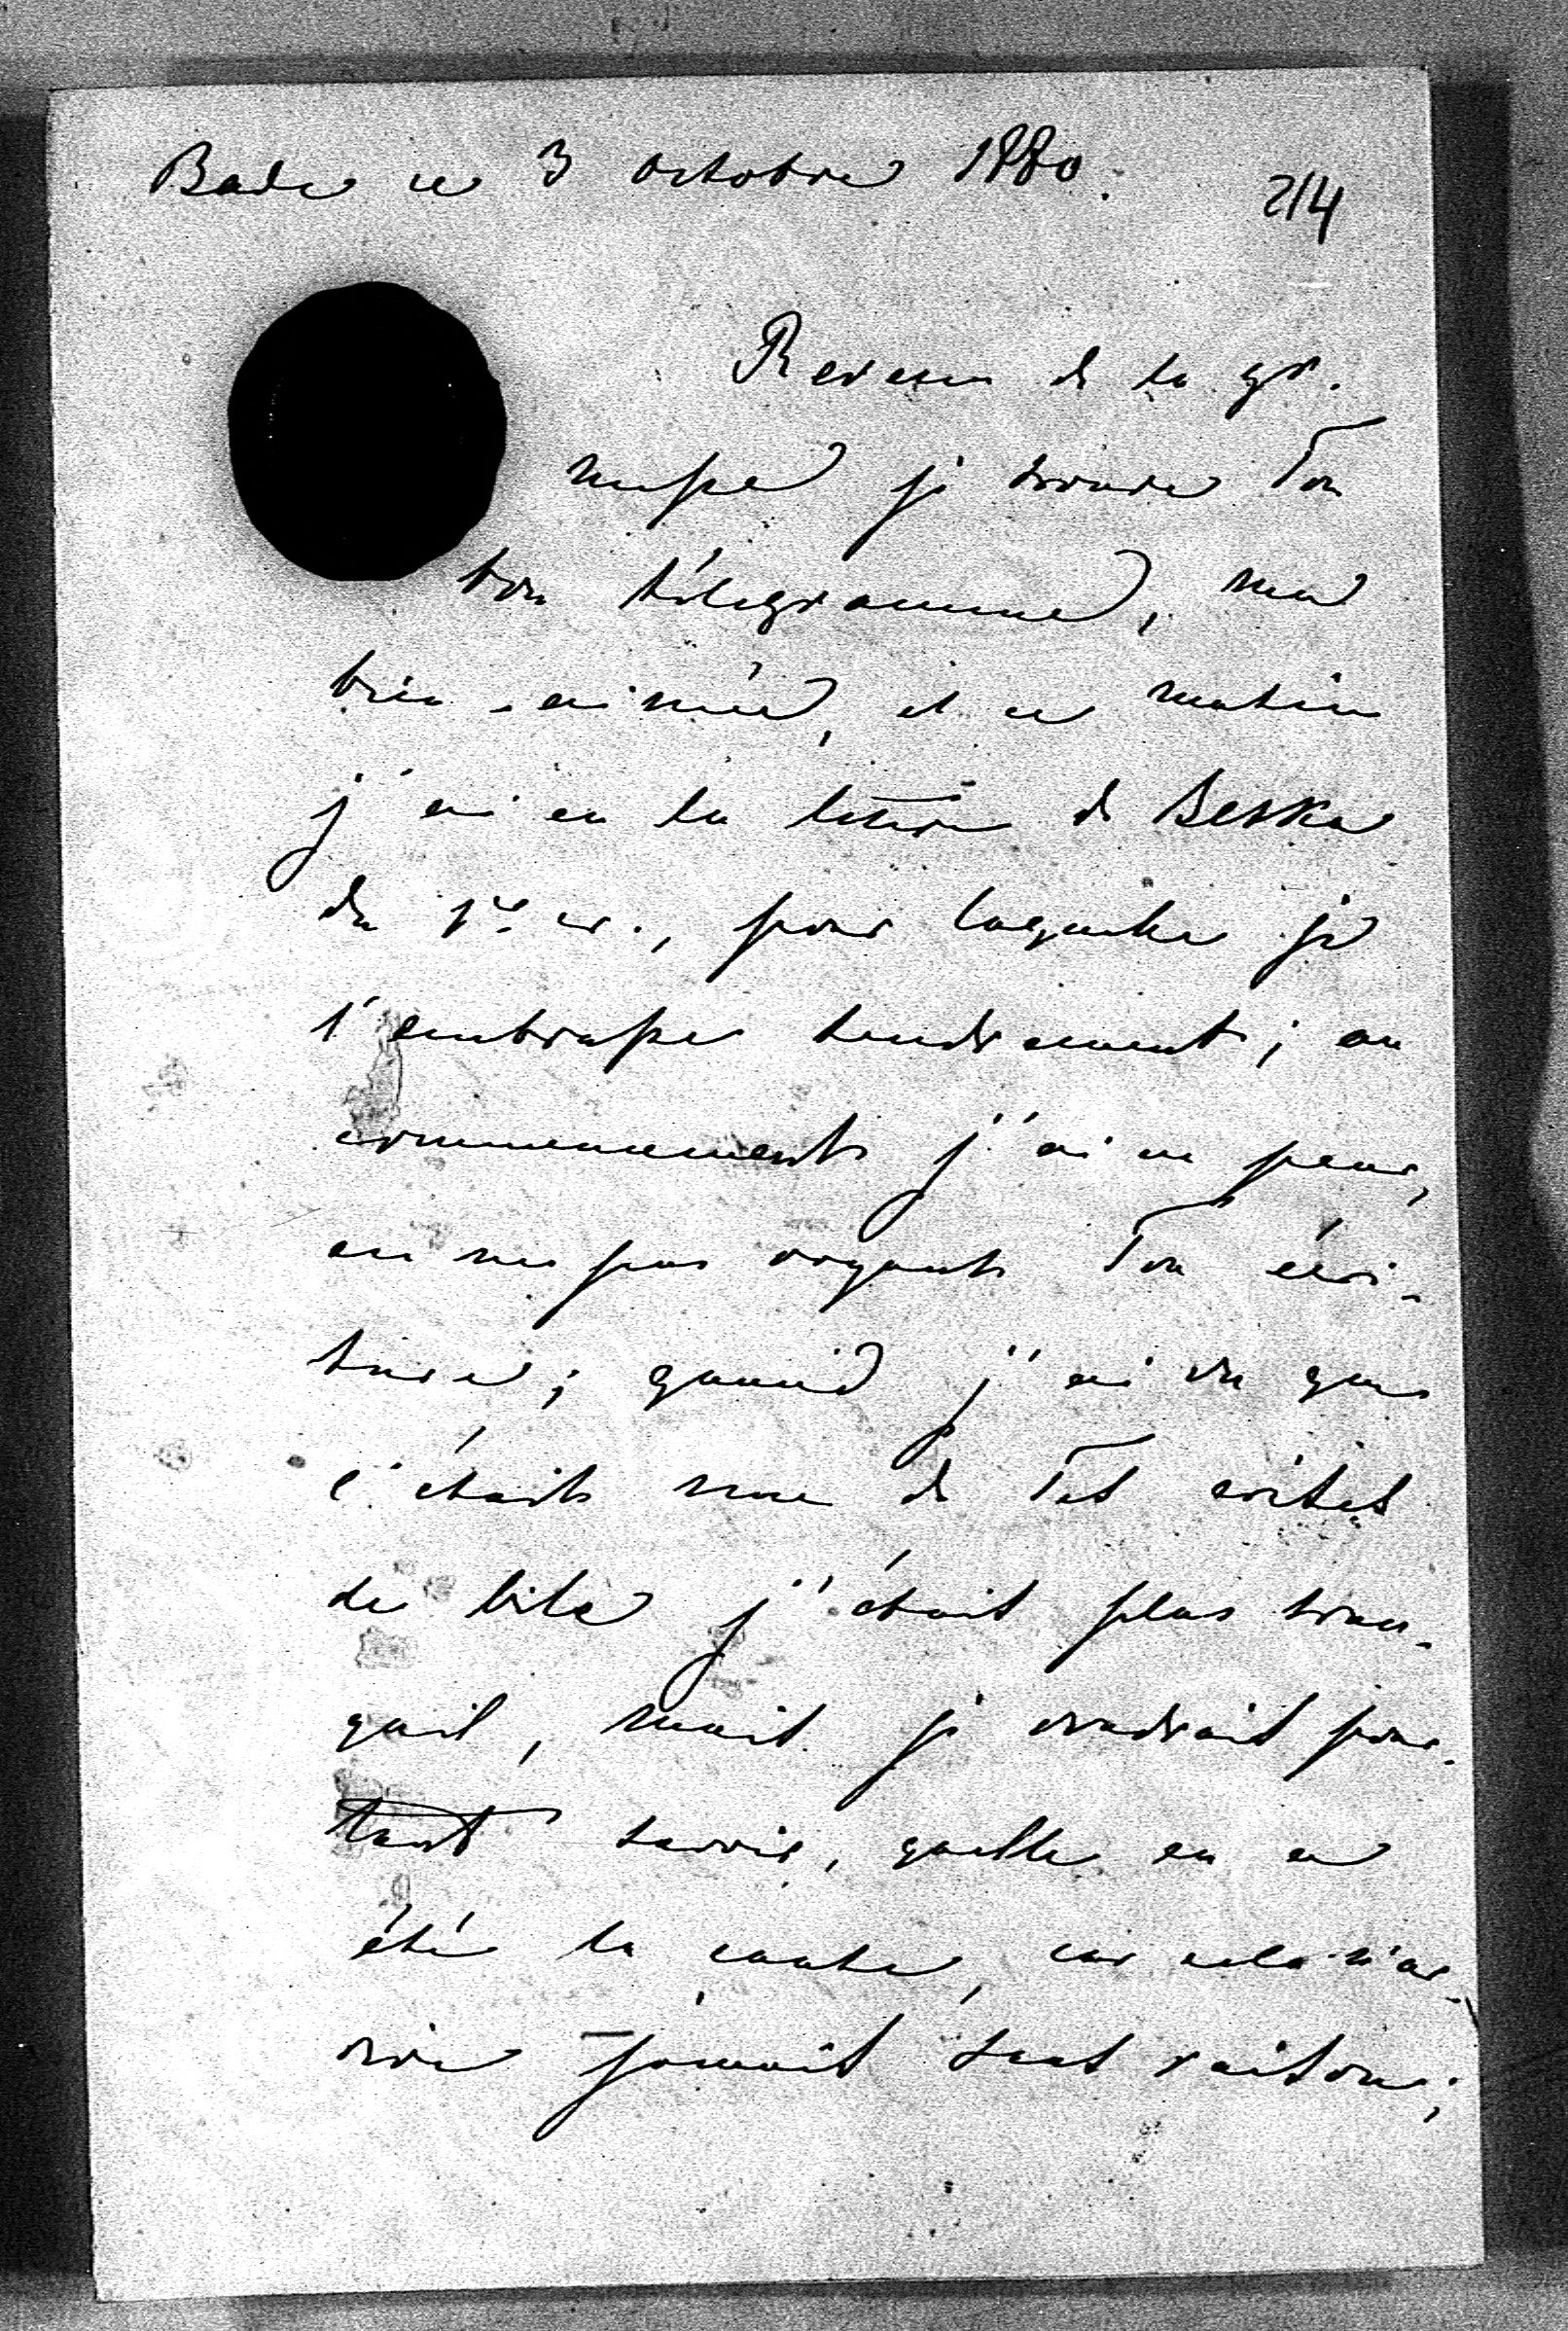 Bade ce 3 octobre 1880.
214
Revenu de la gr.
messe je trouve Ton
bon télegramme, ma
bien-aimée, et ce matin
j'ai eu la lettre de
du 1er cr., pour laquelle je
t'embrasse tendrement; au
commencement j'ai eu peur,
en ne pas voyant Ton écri-
ture; quand j'ai vu que
c'était une de Tes crises
de bile j'étais plus tran-
quil, mais je voudrais pour-
tant savoir, quelle en a
été la cause, car cela n'ar-
rive jamais sans raison;